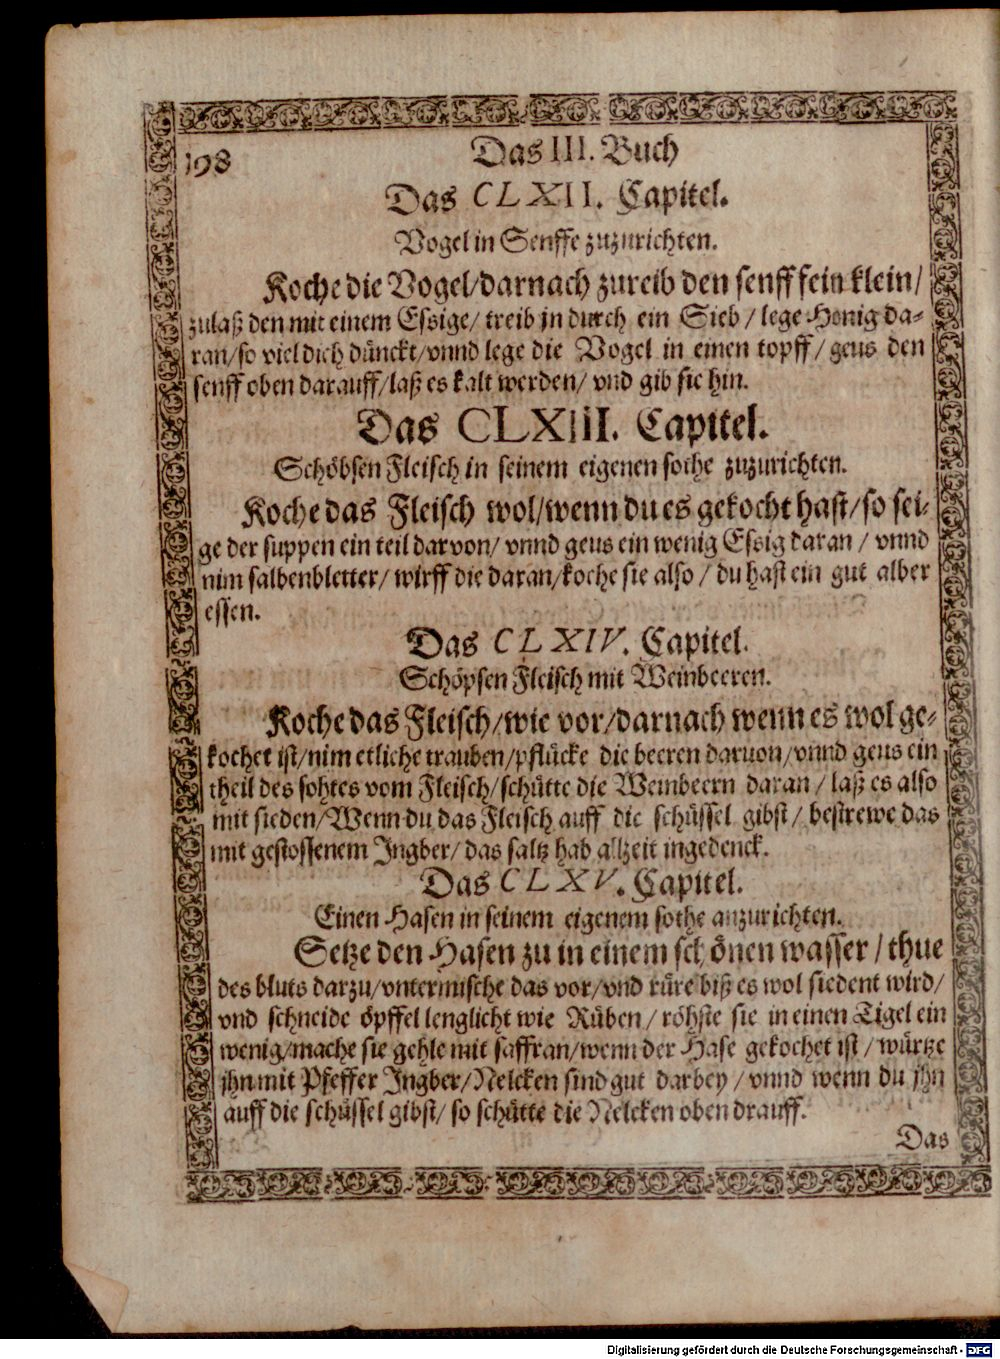 198
Das III. Buch
Das CLXII. Capitel.
Vogel in Senffe zuzurichten.
Koche die Vogel/darnach zureib den senff fein klein/
zulaß den mit einem Essige/ treib jn durch ein Sieb / lege Honig da-
ran/so viel dich dünckt/vnnd lege die Vogel in einen topff/ geus den
senff oben darauff/laß es kalt werden/ vnd gib sie hin.
Das CLXIII. Capitel.
Schöbsen Fleisch in seinem eigenen sothe zuzurichten.
Koche das Fleisch wol/wenn du es gekocht hast/so sei-
ge der suppen ein teil darvon/ vnnd geus ein wenig Essig daran / vnnd
nim salbenbletter/ wirff die daran/koche sie also / du hast ein gut alber
essen.
Das CLXIV. Capitel.
Schöpsen Fleisch mit Weinbeeren.
Koche das Fleisch/wie vor/darnach wenn es wol ge-
kochet ist/nim etliche trauben/pflücke die beeren daruon/vnnd geus ein
theil des sohtes vom Fleisch/schütte die Weinbeern daran / laß es also
mit sieden/Wenn du das Fleisch auff die schüssel gibst/ bestrewe das
mit gestossenem Ingber/ das saltz hab allzeit ingedenck.
Das CLXV. Capitel.
Einen Hasen in seinem eigenem sothe anzurichten.
Setze den Hasen zu in einem schönen wasser / thue
des bluts darzu/vntermische das vor/vnd rüre biß es wol siedent wird/
vnd schneide öpffel lenglicht wie Rüben/ röhste sie in einen Tigel ein
wenig/mache sie gehle mit saffran/wenn der Hase gekochet ist / würtze
jhn mit Pfeffer Ingber/Nelcken sind gut darbey / vnnd wenn du jhn
auff die schüssel gibst/ so schütte die Nelcken oben drauff.
Das
Digitalisierung gefördert durch die Deutsche Forschungsgemeinschaft - DFG